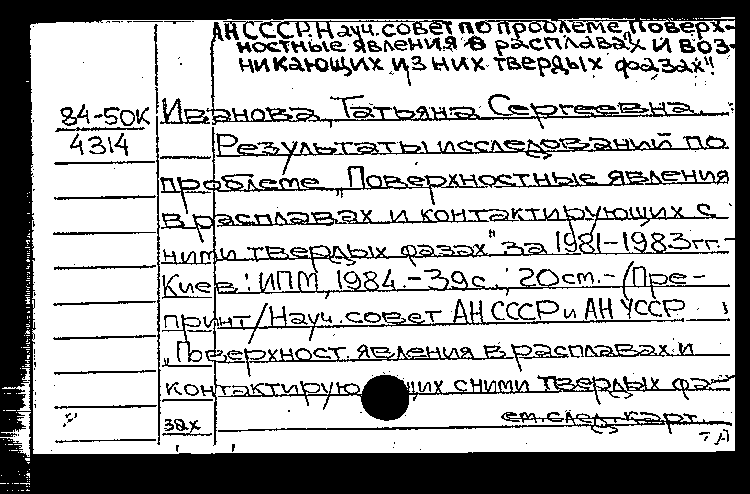 АН СССР. Науч. совет по проблеме „Поверх-
ностные явления в расплавах и воз-
никающих из них твердых фазах".
84-50К
4314
Иванова, Татьяна Сергеевна.
Результаты исследований по
проблеме „Поверхностные явления
в расплавах и контактирующих с
ними твердых фазах" за 1981-1983 гг.-
Киев: ИПМ, 1984.-39с.; 20 см.- (Пре-
принт/Науч. совет АН СССР и АН УССР
„Поверхност. явления в расплавах и
контактирующих с ними твердых фа-
зах
см. след. карт.